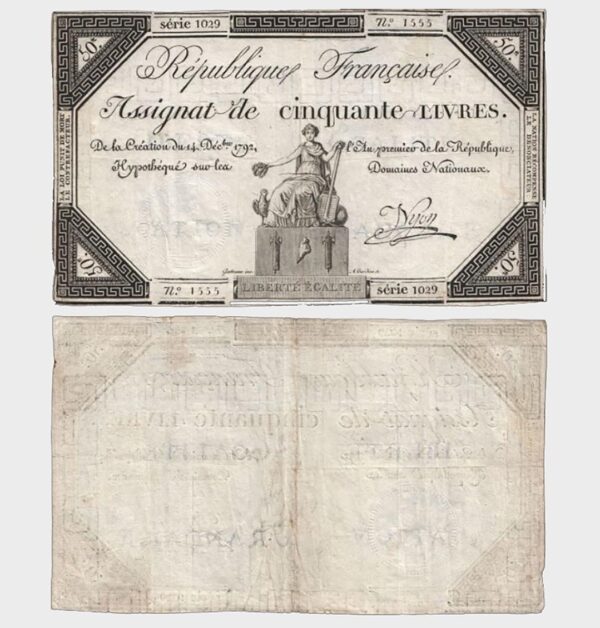 50# série 1029 N.º 1555 50#
République Française.
Assignat de cinquante LIVRES.
De la Création du 14. Décbre 1792, l'An premier de la République,
Hypothéqué sur les Domaines Nationaux.
LA LOI PUNIT DE MORT
LE CONTREFACTEUR.
LA NATION RECOMPENSE
LE DENONCIATEUR
50# N.º 1555 LIBERTÉ ÉGALITÉ série 1029 50#